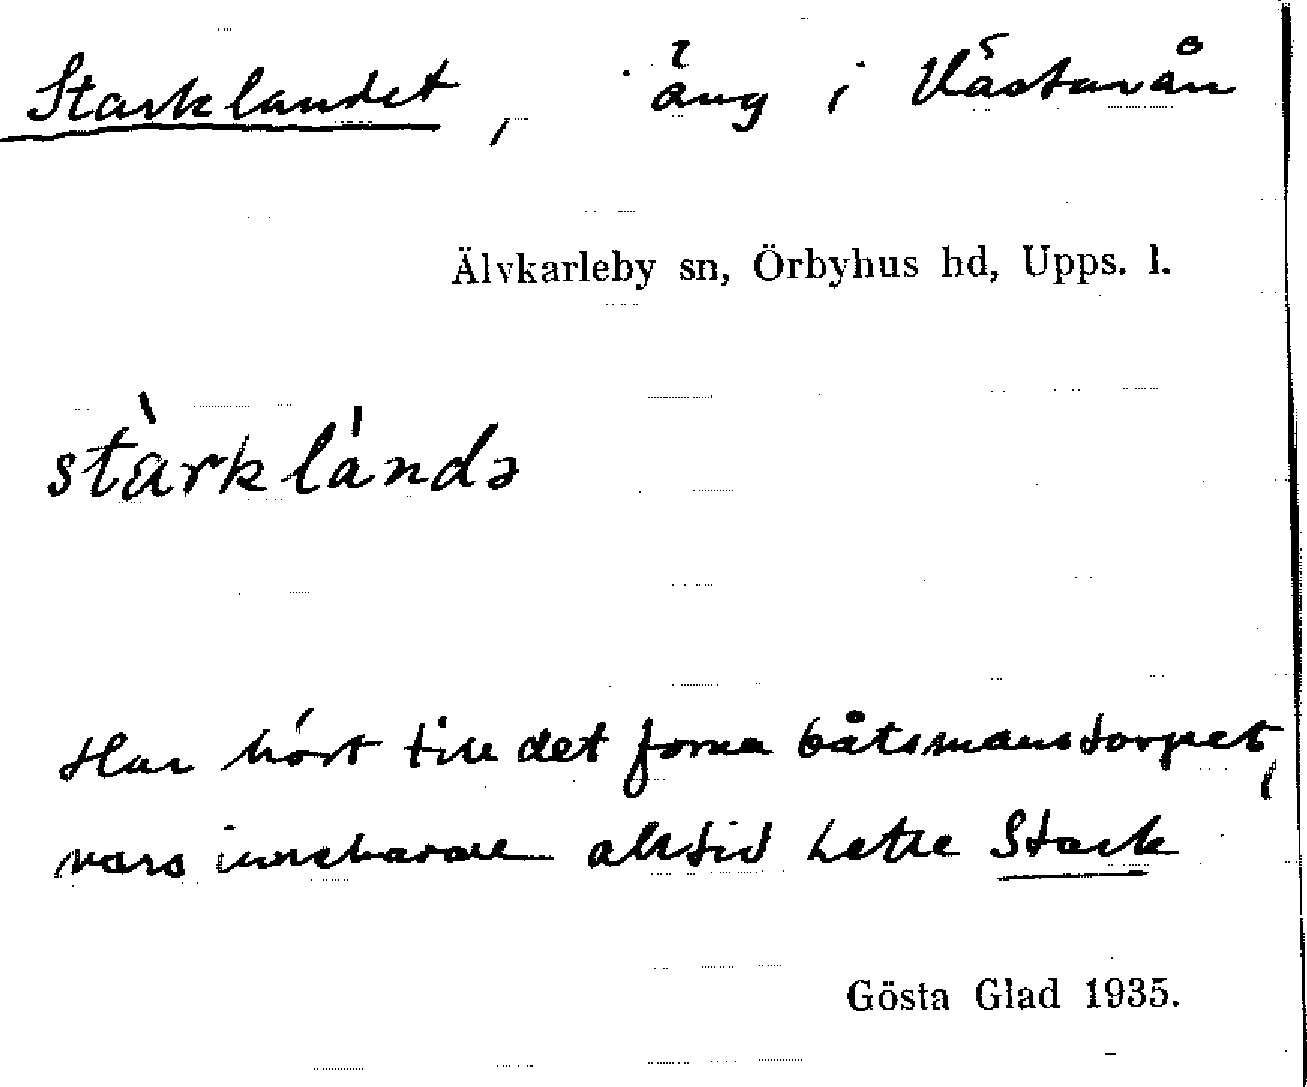 Starklandet, äng i Västanån
Älvkarleby sn, Örbyhus hd, Upps. l.
stàrklándə
Har hört till det forna båtsmanstorpet,
vars innehavare alltid hette Stark
Gösta Glad 1935.